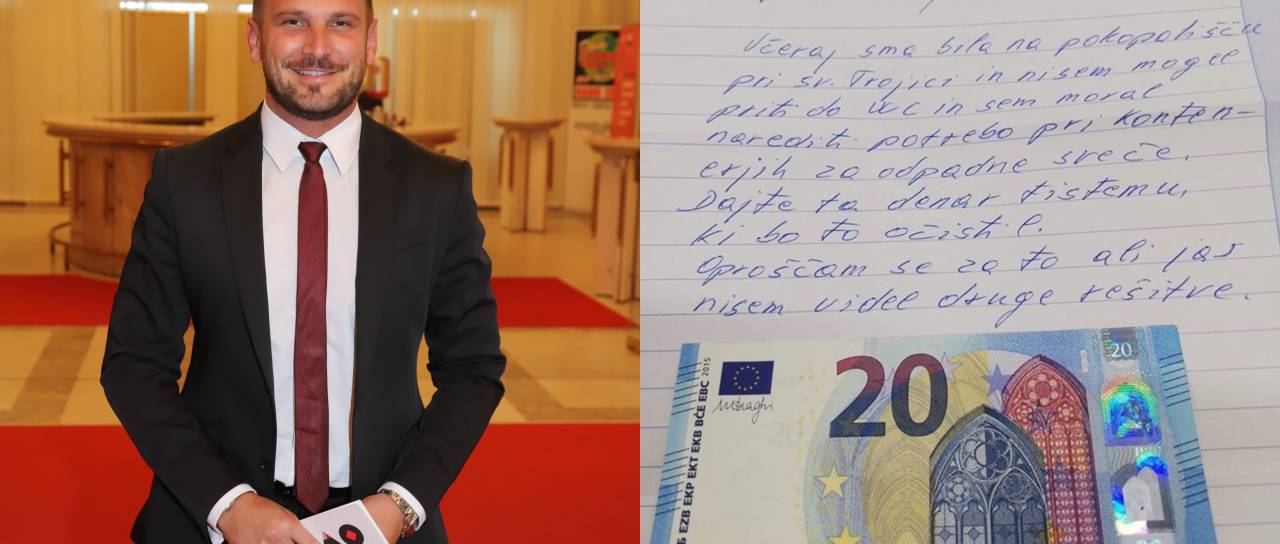 Včeraj sma bila na pokopališču
pri sv. Trojici in nisem mogel
priti do WC in sem moral
narediti potrebo pri konten-
erjih za odpadne sveče.
Dajte ta denar tistemu,
ki bo to očistil.
Oproščam se za to ali jas
nisem videl druge rešitve.
20
20
EZB EKP EKT EKB BČE EBC 2015